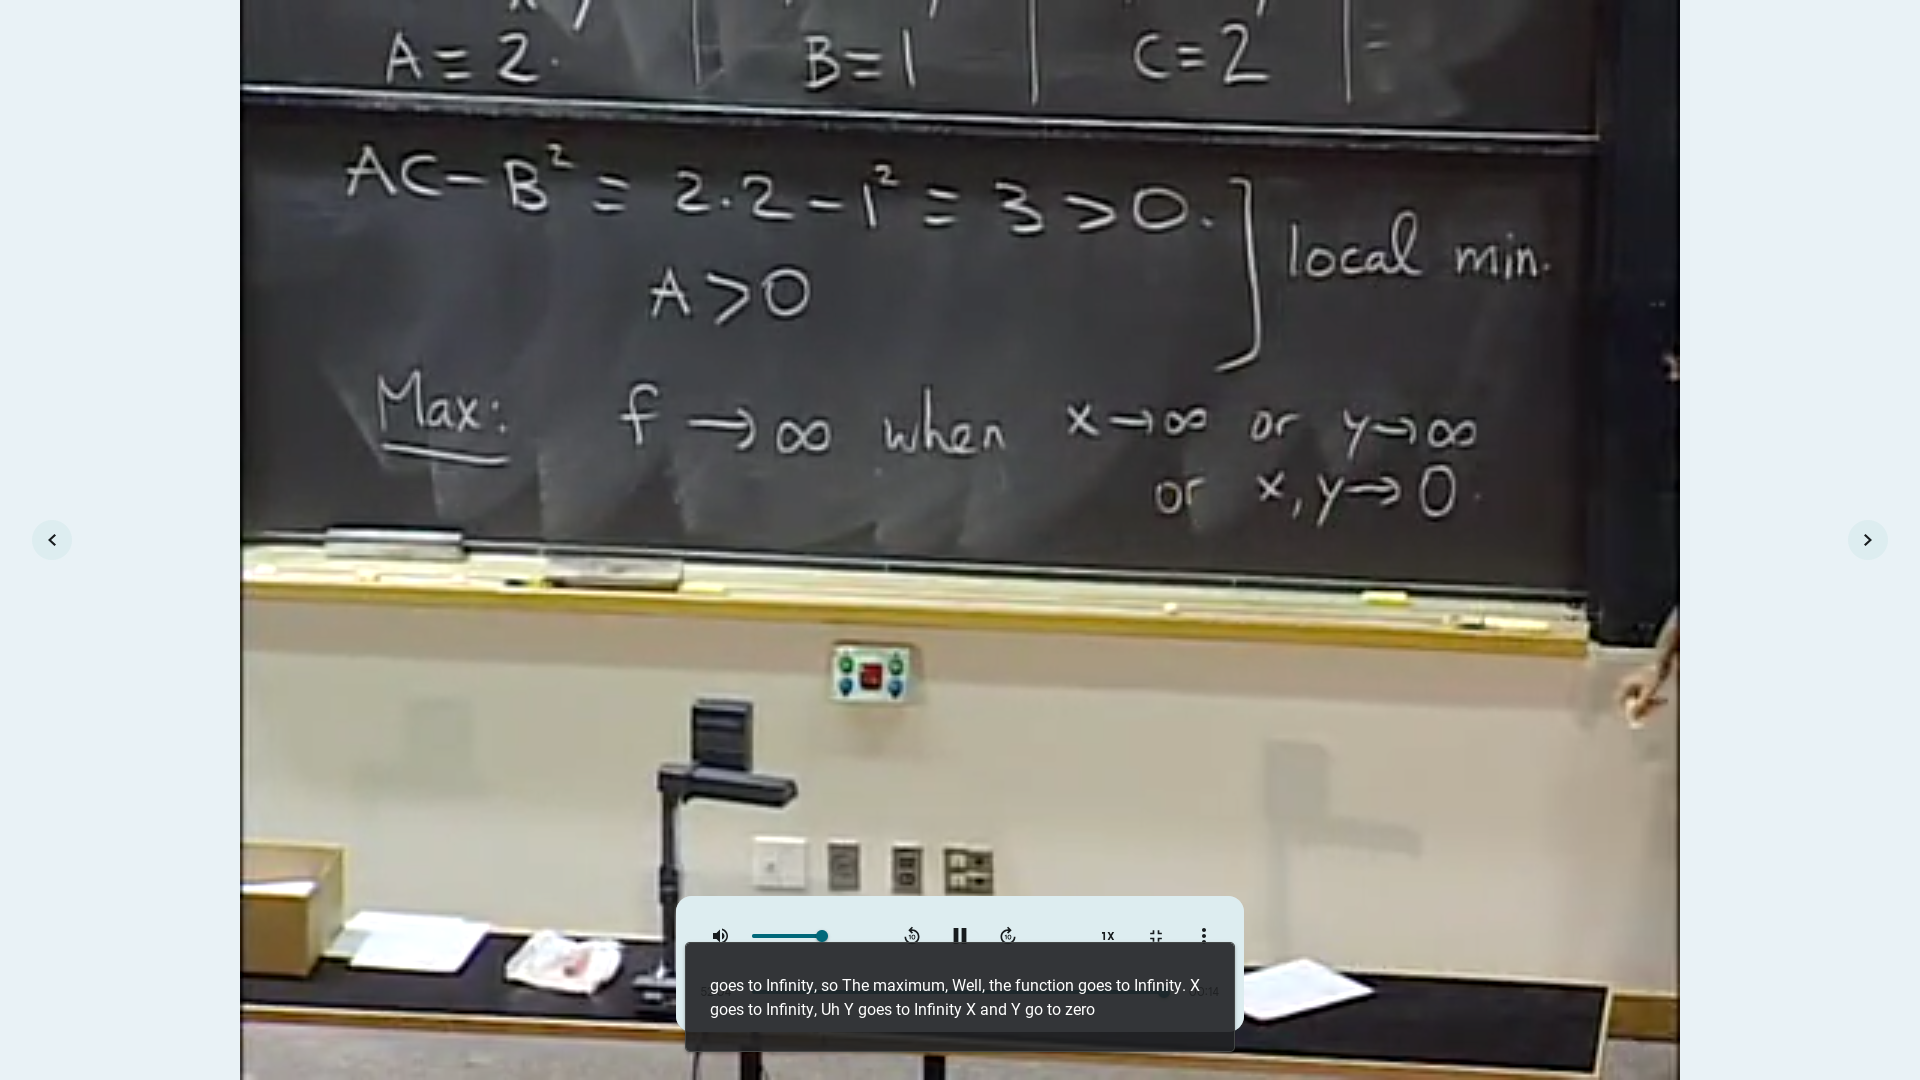 A = 2. B = 1 C = 2 =
AC - B² = 2·2 - 1² = 3 > 0.
local min.
A > 0
Max: f → ∞ when x → ∞ or y → ∞
or x, y → 0.
1X
goes to Infinity, so The maximum, Well, the function goes to Infinity. X
goes to Infinity, Uh Y goes to Infinity X and Y go to zero